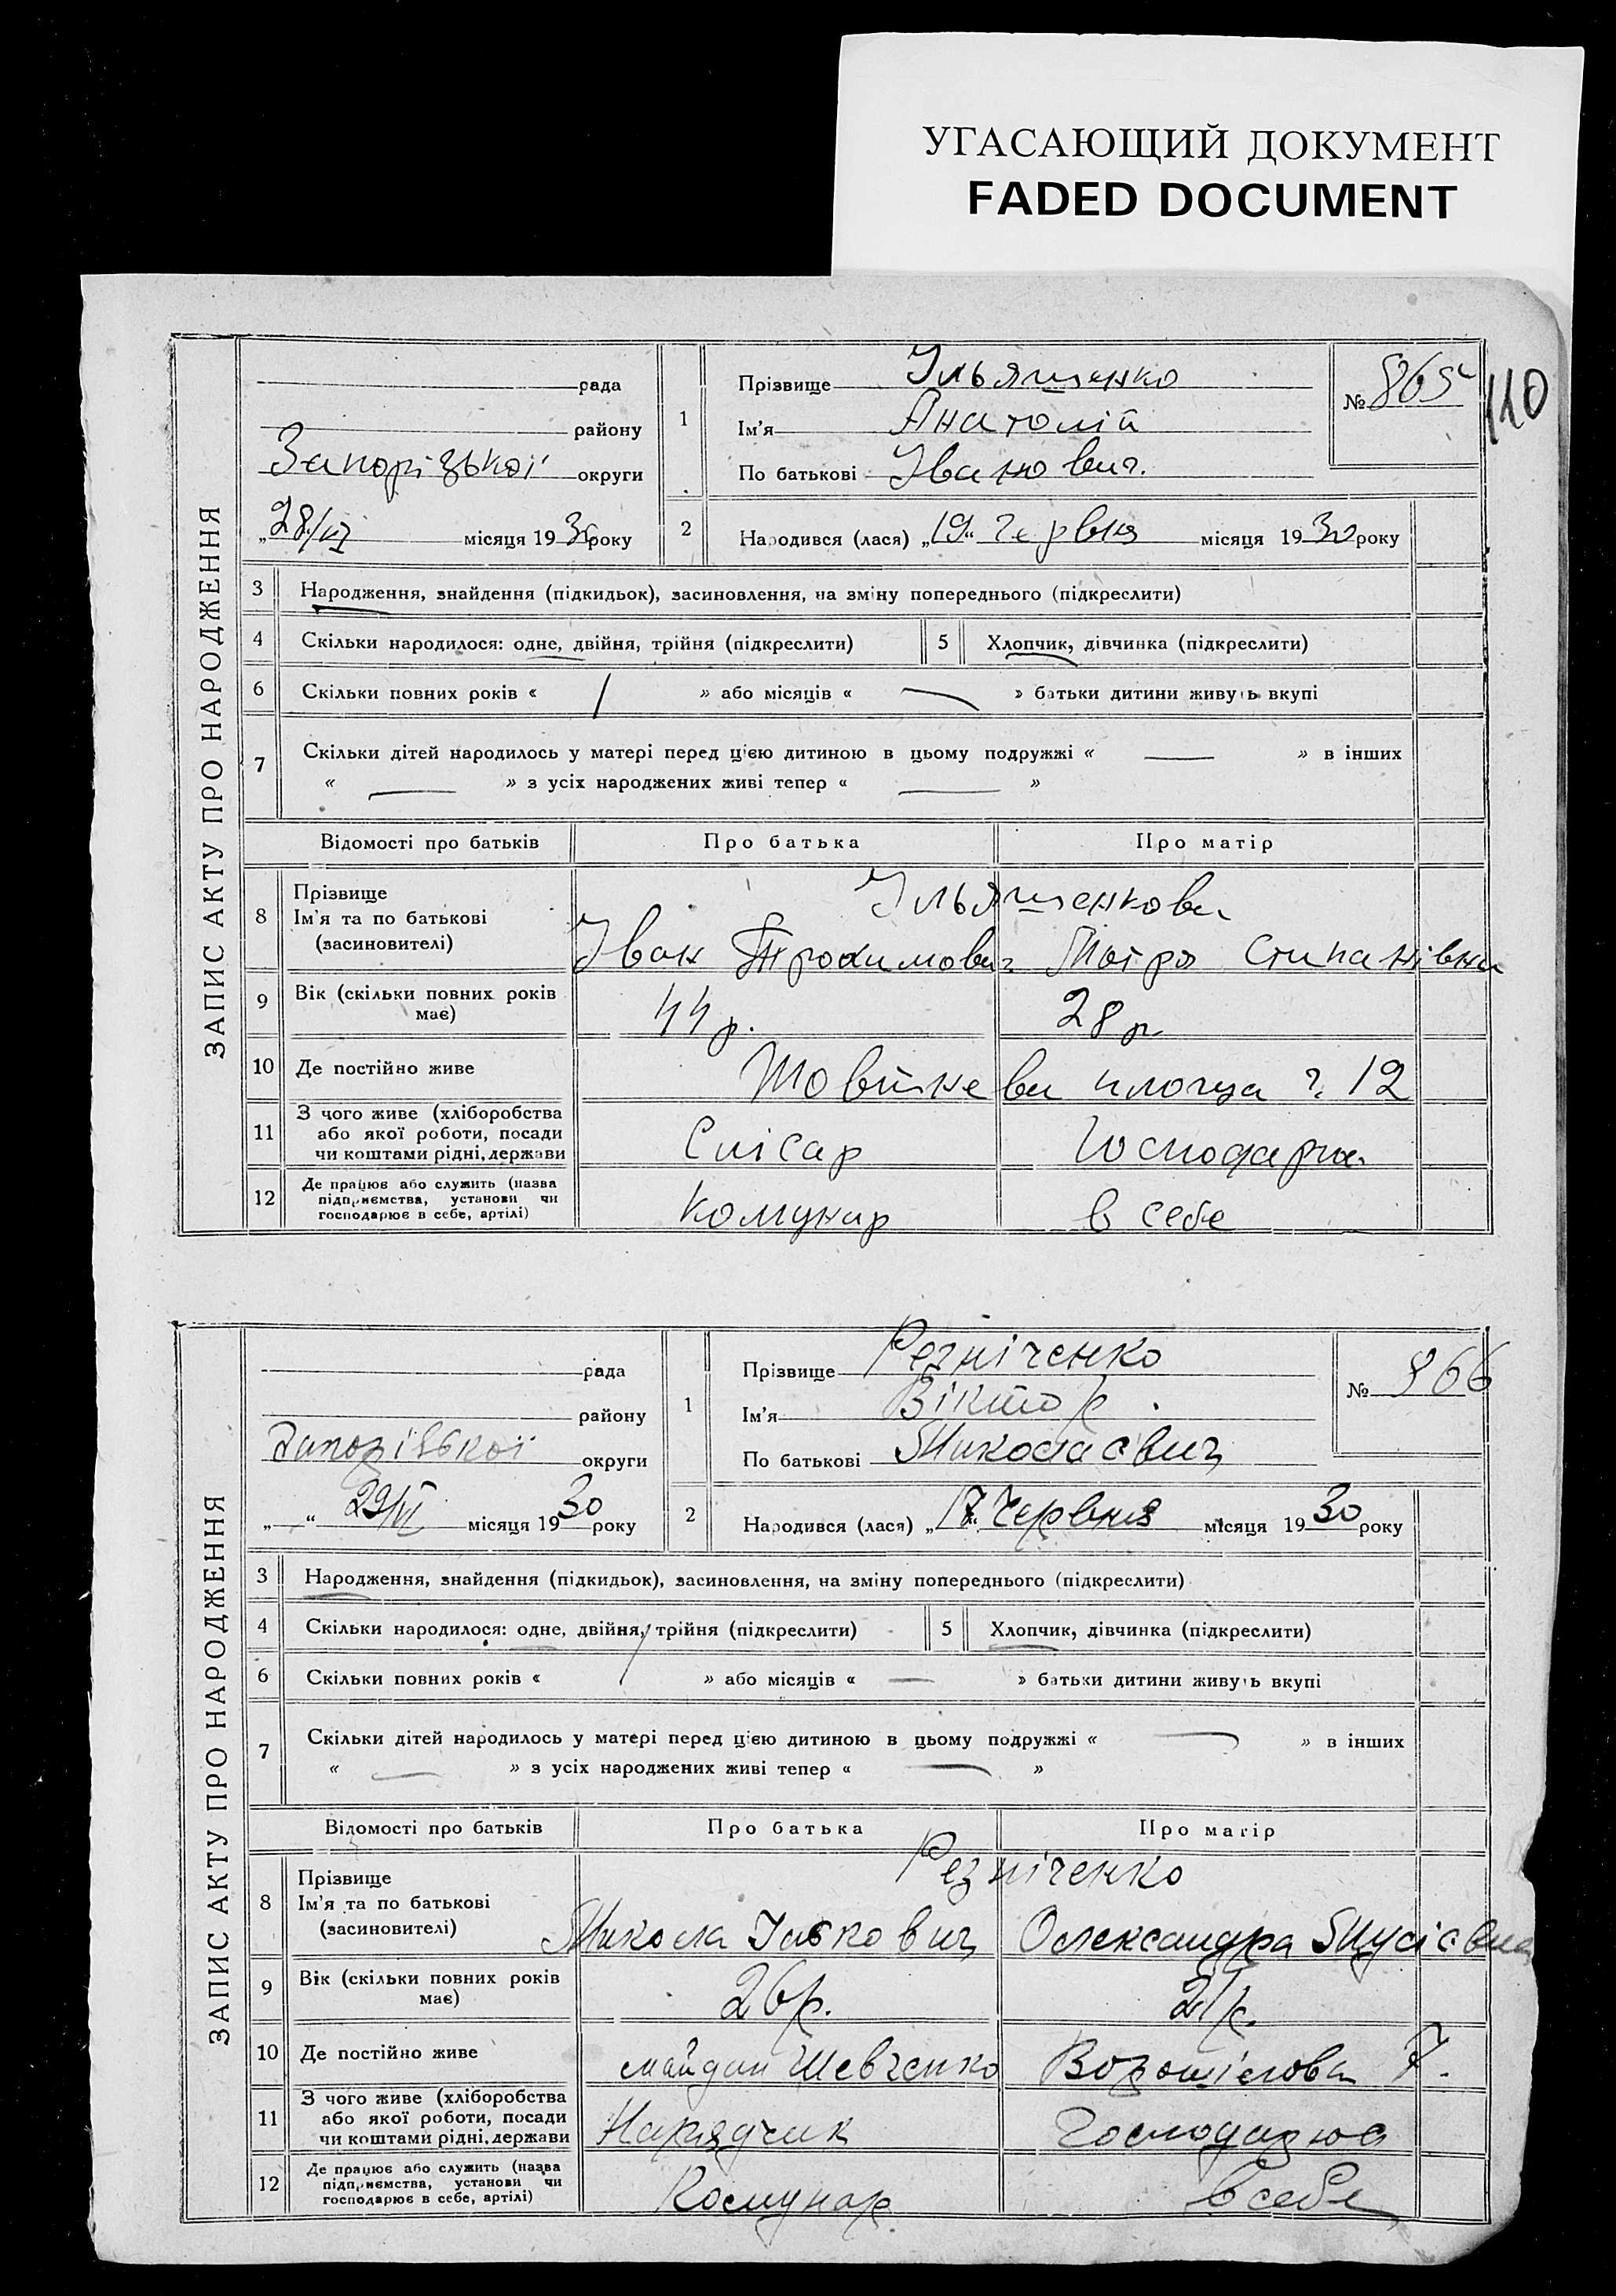 УГАСАЮЩИЙ ДОКУМЕНТ
FADED DOCUMENT
110
ЗАПИС АКТУ ПРО НАРОДЖЕННЯ
рада
району
Запорізької округи
„28/VI місяця 1930 року
1
Прізвище Ільяшенко
Ім'я Анатолій
По батькові Іванович.
№ 865
2 Народився (лася) „19“ Червня місяця 1930 року
3 Народження, знайдення (підкидьок), засиновлення, на зміну попереднього (підкреслити)
4 Скільки народилося: одне, двійня, трійня (підкреслити) 5 Хлопчик, дівчинка (підкреслити)
6 Скільки повних років « / » або місяців « — » батьки дитини живуть вкупі
7 Скільки дітей народилось у матері перед цією дитиною в цьому подружжі « — » в інших
« — » з усіх народжених живі тепер « — »
Відомості про батьків Про батька Про матір
8 Прізвище
Ім'я та по батькові
(засиновителі)
Ільяшенкови
Іван Трохимович Мотря Степанівна
9 Вік (скільки повних років має) 44 р. 28 р.
10 Де постійно живе площа 12
11 З чого живе (хліборобства або якої роботи, посади чи коштами рідні, держави Слісар Господарка
12 Де працює або служить (назва підприємства, установи чи господарює в себе, артілі) Комунар в себе
ЗАПИС АКТУ ПРО НАРОДЖЕННЯ
рада
району
Запорізької округи
„ “ 29/VI місяця 1930 року
1
Прізвище Резніченко
Ім'я Віктор.
По батькові Миколаєвич
№ 866
2 Народився (лася) „17“ Червня місяця 1930 року
3 Народження, знайдення (підкидьок), засиновлення, на зміну попереднього (підкреслити)
4 Скільки народилося: одне, двійня, трійня (підкреслити) 5 Хлопчик, дівчинка (підкреслити)
6 Скільки повних років « / » або місяців « — » батьки дитини живуть вкупі
7 Скільки дітей народилось у матері перед цією дитиною в цьому подружжі « — » в інших
« — » з усіх народжених живі тепер « — »
Відомості про батьків Про батька Про матір
8 Прізвище
Ім'я та по батькові
(засиновителі)
Резніченко
Микола Ількович Олександра Мусієвна
9 Вік (скільки повних років має) 26 р. 21 р.
10 Де постійно живе майдан Шевченко Ворошілова 7.
11 З чого живе (хліборобства або якої роботи, посади чи коштами рідні, держави Нарядчик Господарює
12 Де працює або служить (назва підприємства, установи чи господарює в себе, артілі) Комунар в себе